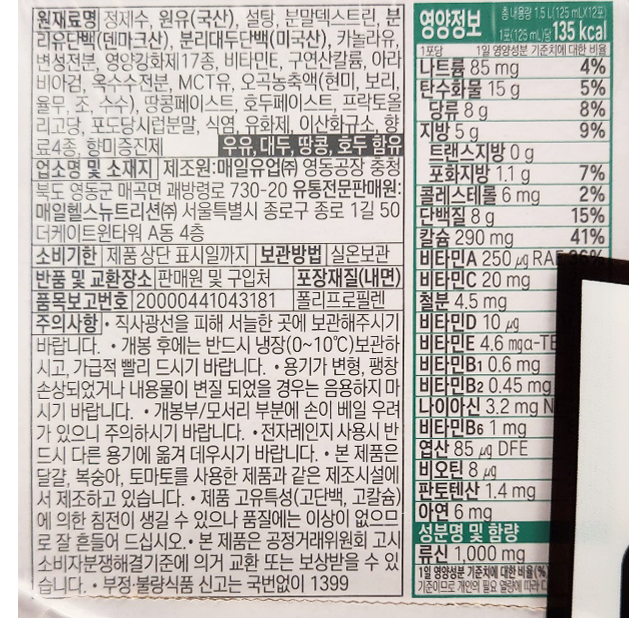 원재료명 정제수, 원유(국산), 설탕, 분말덱스트린, 분
리유단백(덴마크산), 분리대두단백(미국산), 카놀라유,
변성전분, 영양강화제17종, 비타민E, 구연산칼륨, 아라
비아검, 옥수수전분, MCT유, 오곡농축액(현미, 보리,
율무, 조, 수수), 땅콩페이스트, 호두페이스트, 프락토올
리고당, 포도당시럽분말, 식염, 유화제, 이산화규소, 향
료4종, 향미증진제 우유, 대두, 땅콩, 호두 함유
업소명 및 소재지 제조원:매일유업㈜ 영동공장 충청
북도 영동군 매곡면 괘방령로 730-20 유통전문판매원:
매일헬스뉴트리션㈜ 서울특별시 종로구 종로 1길 50
더케이트윈타워 A동 4층
소비기한 제품 상단 표시일까지 보관방법 실온보관
반품 및 교환장소 판매원 및 구입처 포장재질(내면)
품목보고번호 20000441043181 폴리프로필렌
주의사항 • 직사광선을 피해 서늘한 곳에 보관해주시기
바랍니다. • 개봉 후에는 반드시 냉장(0~10℃)보관하
시고, 가급적 빨리 드시기 바랍니다. • 용기가 변형, 팽창
손상되었거나 내용물이 변질 되었을 경우는 음용하지 마
시기 바랍니다. • 개봉부/모서리 부분에 손이 베일 우려
가 있으니 주의하시기 바랍니다. • 전자레인지 사용시 반
드시 다른 용기에 옮겨 데우시기 바랍니다. • 본 제품은
달걀, 복숭아, 토마토를 사용한 제품과 같은 제조시설에
서 제조하고 있습니다. • 제품 고유특성(고단백, 고칼슘)
에 의한 침전이 생길 수 있으나 품질에는 이상이 없으므
로 잘 흔들어 드십시오. • 본 제품은 공정거래위원회 고시
소비자분쟁해결기준에 의거 교환 또는 보상받을 수 있
습니다. • 부정·불량식품 신고는 국번없이 1399
영양정보 총 내용량 1.5 L(125 mLX12포)
1포(125 mL)당 135 kcal
1포당 1일 영양성분 기준치에 대한 비율
나트륨 85 mg 4%
탄수화물 15 g 5%
당류 8 g 8%
지방 5 g 9%
트랜스지방 0 g
포화지방 1.1 g 7%
콜레스테롤 6 mg 2%
단백질 8 g 15%
칼슘 290 mg 41%
비타민A 250 μg RAE
비타민C 20 mg
철분 4.5 mg
비타민D 10 μg
비타민E 4.6 mgα-TE
비타민B1 0.6 mg
비타민B2 0.45 mg
나이아신 3.2 mg N
비타민B6 1 mg
엽산 85 μg DFE
비오틴 8 μg
판토텐산 1.4 mg
아연 6 mg
성분명 및 함량
류신 1,000 mg
1일 영양성분 기준치에 대한 비율(%)
기준이므로 개인의 필요 열량에 따라 다